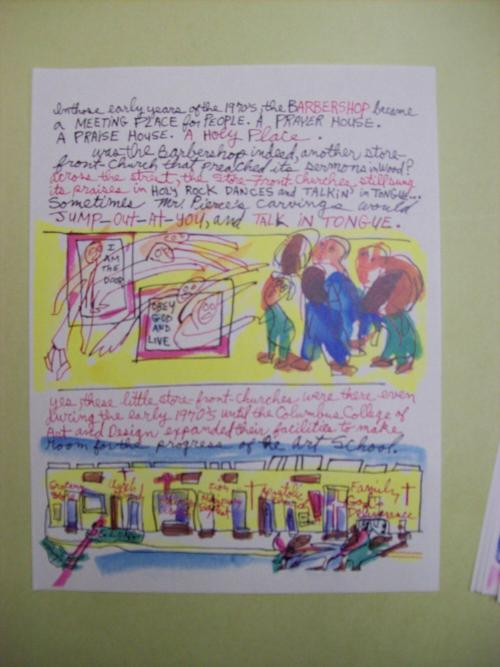 In those early years of the 1970's, the BARBERSHOP became
a MEETING PLACE for PEOPLE. A PRAYER HOUSE.
A PRAISE HOUSE. A Holy Place.
was the Barbershop indeed, another store-
front-Church that preached its sermons in wood?
across the street, the Store-Front-Churches, still sung
its praises in HOLY ROCK DANCES and TALKIN' in TONGUE...
Sometimes Mr. Pierce's Carvings would
JUMP-OUT-AT-YOU, and TALK IN TONGUE.
I
AM
THE
DOOR
OBEY
GOD
AND
LIVE
yes, these little store-front-churches were there even
during the early 1970's until the Columbus College of
Art and Design expanded their facilities to make
room for the progress of the Art School.
Apostolic
Family
God's
Deliverance